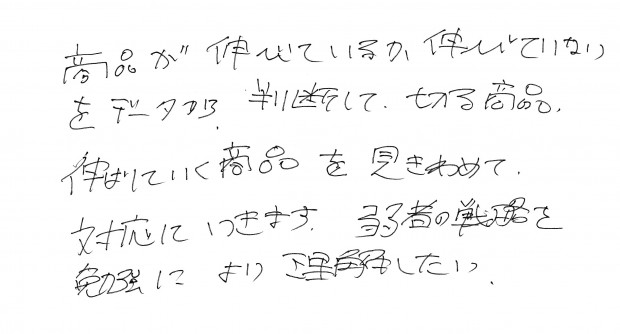 商品が伸びているか、伸びていない
をデータから、判断して、切る商品、
伸ばしていく商品を見きわめて、
対応につきます。弱者の戦略を
勉強により理解したい。